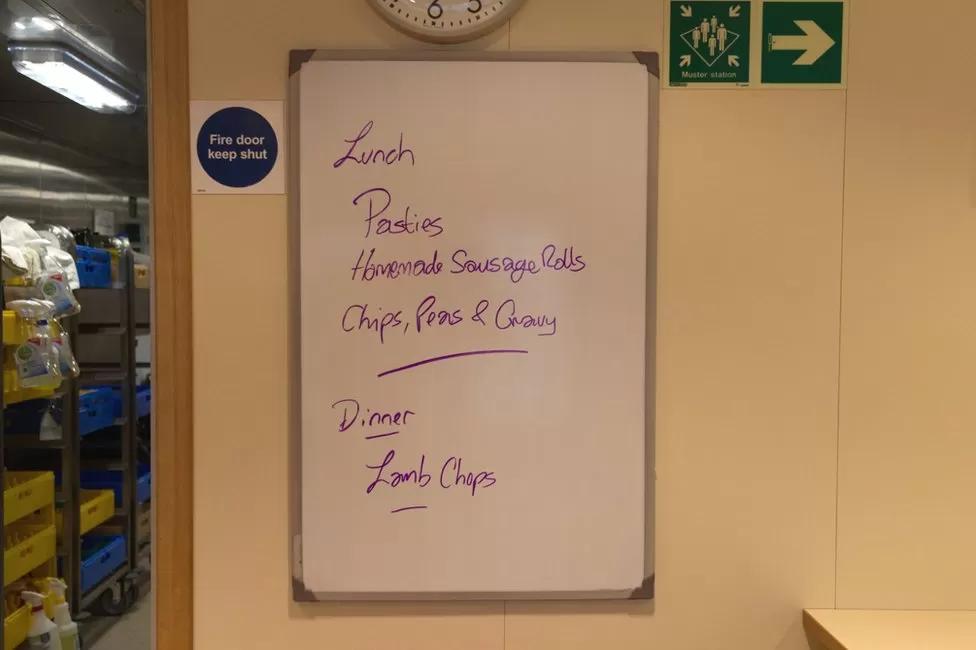 6
5
Muster station
Fire door
keep shut
Lunch
Pasties
Homemade Sausage Rolls
Chips, Peas & Gravy
Dinner
Lamb Chops